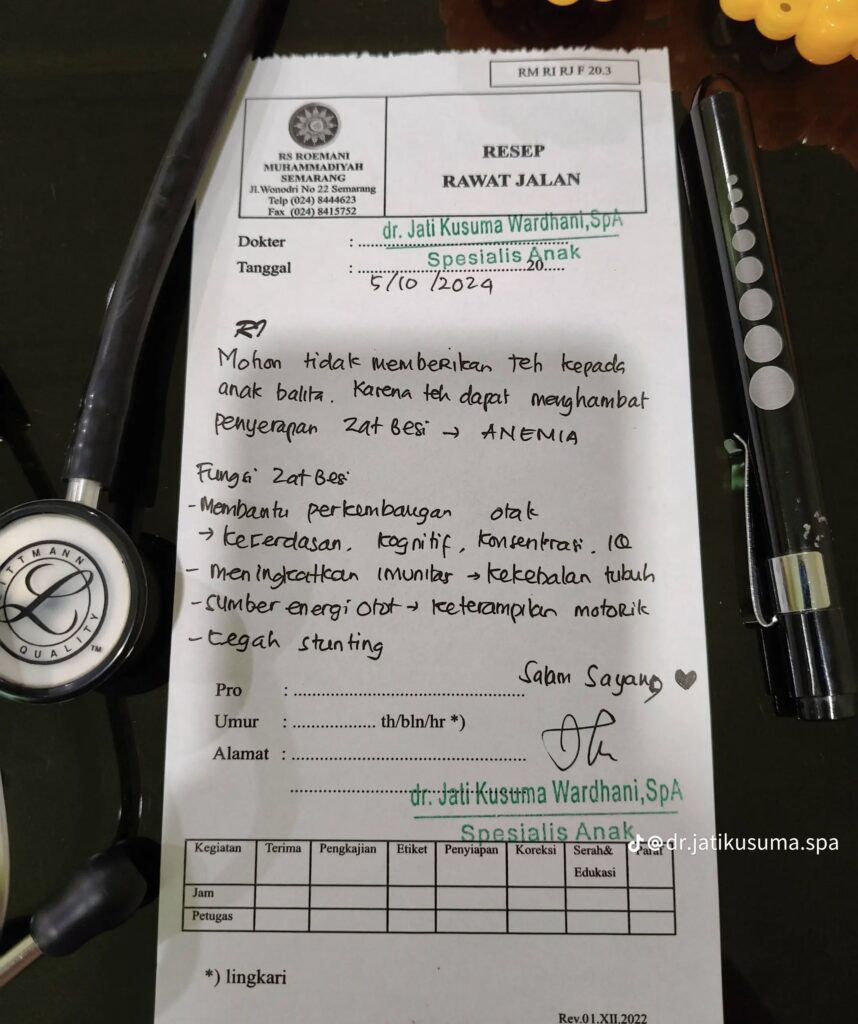 RM RI RJ F 20.3
RS ROEMANI
MUHAMMADIYAH
SEMARANG
Jl.Wonodri No 22 Semarang
Telp (024) 8444623
Fax (024) 8415752
RESEP
RAWAT JALAN
Dokter : dr. Jati Kusuma Wardhani,SpA
Spesialis Anak
Tanggal : 20.....
5/10/2024
R/
Mohon tidak memberikan teh kepada
anak balita. Karena teh dapat menghambat
penyerapan Zat Besi → ANEMIA
Fungsi Zat Besi
- Membantu perkembangan otak
→ kecerdasan, kognitif, konsentrasi, IQ
- meningkatkan imunitas → kekebalan tubuh
- Sumber energi otot → keterampilan motorik
- cegah stunting
Salam Sayang ♥
Pro : ..........
Umur : .......... th/bln/hr *)
Alamat : ..........
dr. Jati Kusuma Wardhani,SpA
Spesialis Anak
@dr.jatikusuma.spa
Kegiatan Terima Pengkajian Etiket Penyiapan Koreksi Serah& Edukasi Paraf
Jam
Petugas
*) lingkari
Rev.01.XII.2022
LITTMANN
QUALITY
TM